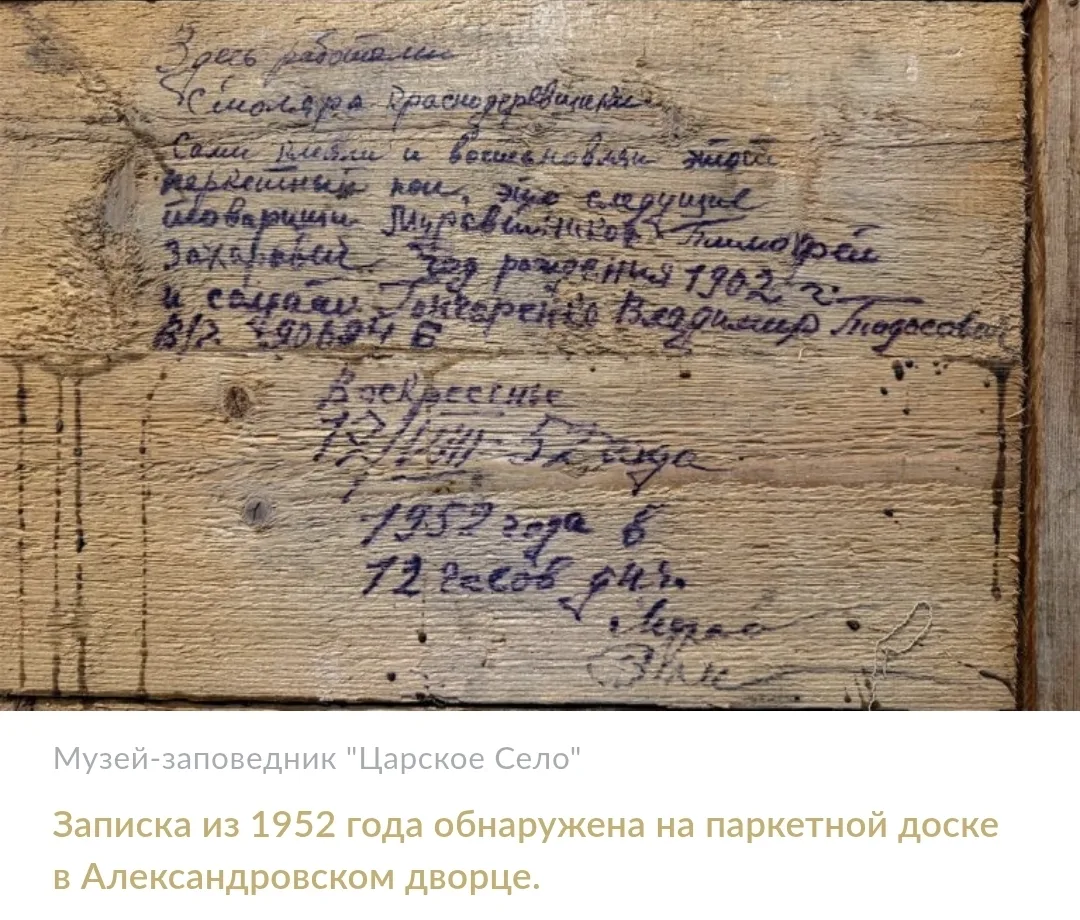 Здесь работали
Столяра Краснодеревщики
Сами клеяли и восстановляли этот
паркетный пол, это следущие
товарищи Муравейников Тимофей
Захарович год рождения 1902 г.
и солдат Гончаренко Владимир Тодосович
В/ч 29069 Б
Воскресенье
17/VIII-52 года
1952 года в
12 часов дня.
Музей-заповедник "Царское Село"
Записка из 1952 года обнаружена на паркетной доске
в Александровском дворце.